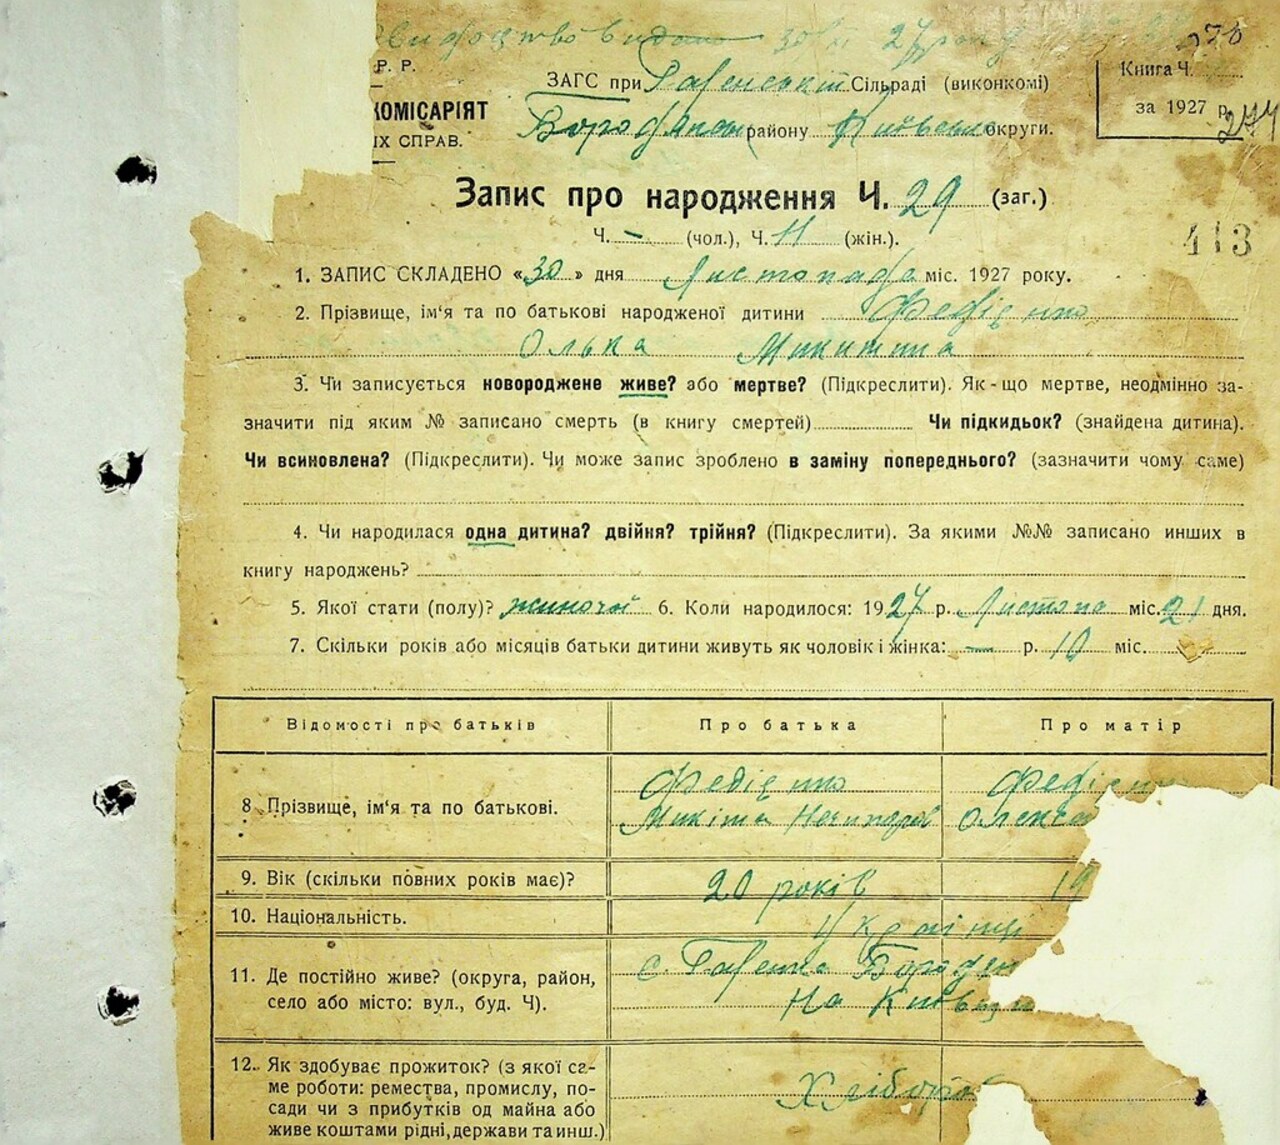 270
Р. Р.
ЗАГС при Гавенській Сільраді (виконкомі)
Книга Ч.
КОМІСАРІЯТ
Бородянськ району Київської округи.
за 1927 р.
274
ІХ СПРАВ.
Запис про народження Ч. 29 (заг.)
Ч. — (чол.), Ч. 11 (жін.).
413
1. ЗАПИС СКЛАДЕНО «30» дня Листопада міс. 1927 року.
2. Прізвище, ім'я та по батькові народженої дитини
Олька Микитина
3. Чи записується новороджене живе? або мертве? (Підкреслити). Як-що мертве, неодмінно за-
значити під яким № записано смерть (в книгу смертей) Чи підкидьок? (знайдена дитина).
Чи всиновлена? (Підкреслити). Чи може запис зроблено в заміну попереднього? (зазначити чому саме)
4. Чи народилася одна дитина? двійня? трійня? (Підкреслити). За якими №№ записано инших в
книгу народжень?
5. Якої стати (полу)? жиночой 6. Коли народилося: 1927 р. Листопа міс. 21 дня.
7. Скільки років або місяців батьки дитини живуть як чоловік і жінка: — р. 10 міс.
Відомості про батьків Про батька Про матір
8. Прізвище, ім'я та по батькові.
Микіта
9. Вік (скільки повних років має)? 20 років 19
10. Національність. Україпці
11. Де постійно живе? (округа, район,
село або місто: вул., буд. Ч).
с. Бородян
На Київщи
12. Як здобуває прожиток? (з якої са-
ме роботи: ремества, промислу, по-
сади чи з прибутків од майна або
живе коштами рідні, держави та инш.)
Хлібороб